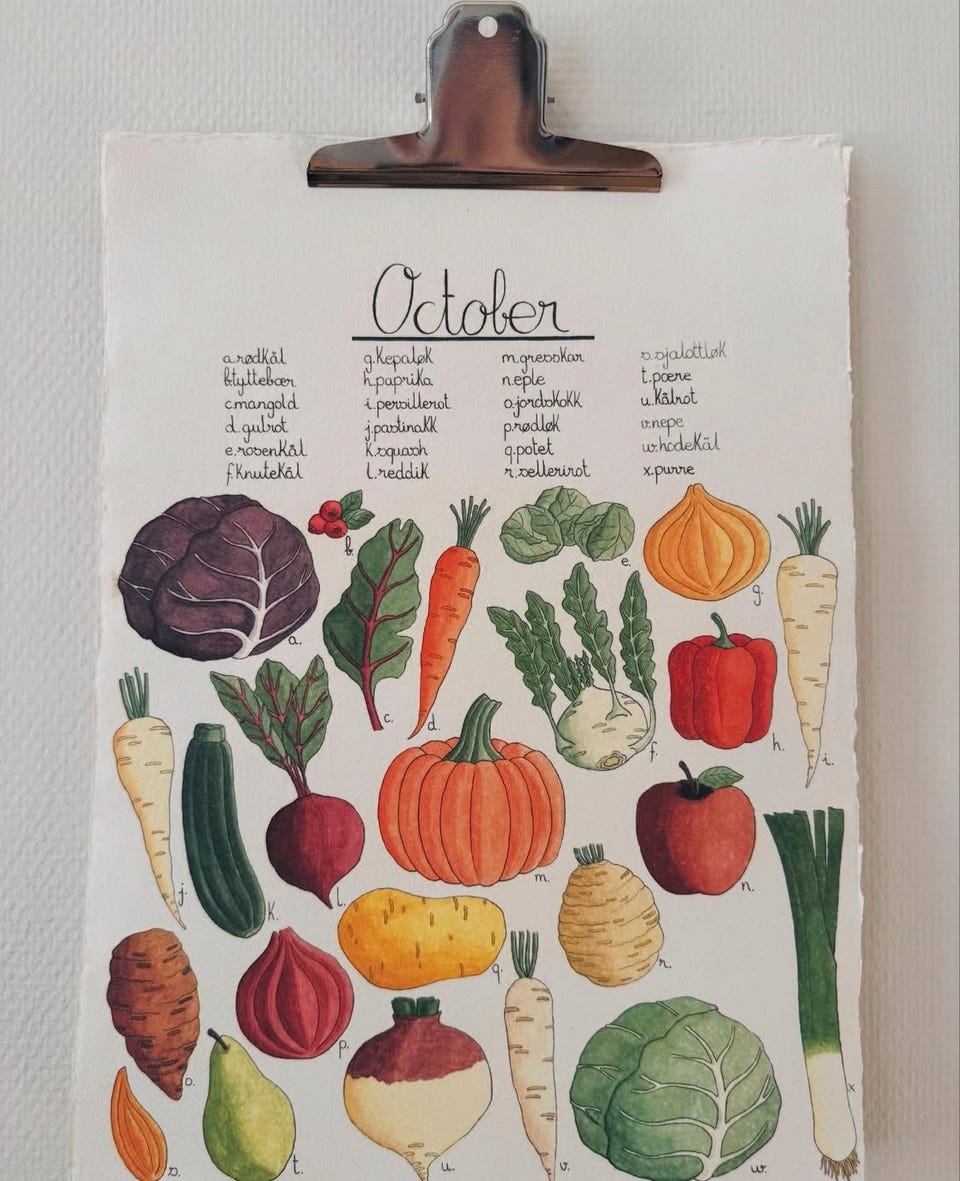 October
a.rødkål
b.tyttebær
c.mangold
d.gulrot
e.rosenkål
f.knutekål
g.kepaløk
h.paprika
i.persillerot
j.pastinakk
k.squash
l.reddik
m.gresskar
n.eple
o.jordskokk
p.rødløk
q.potet
r.sellerirot
s.sjalottløk
t.pære
u.kålrot
v.nepe
w.hodekål
x.purre
a.
b.
c.
d.
e.
f.
g.
h.
i.
j.
k.
l.
m.
n.
o.
p.
q.
r.
s.
t.
u.
v.
w.
x